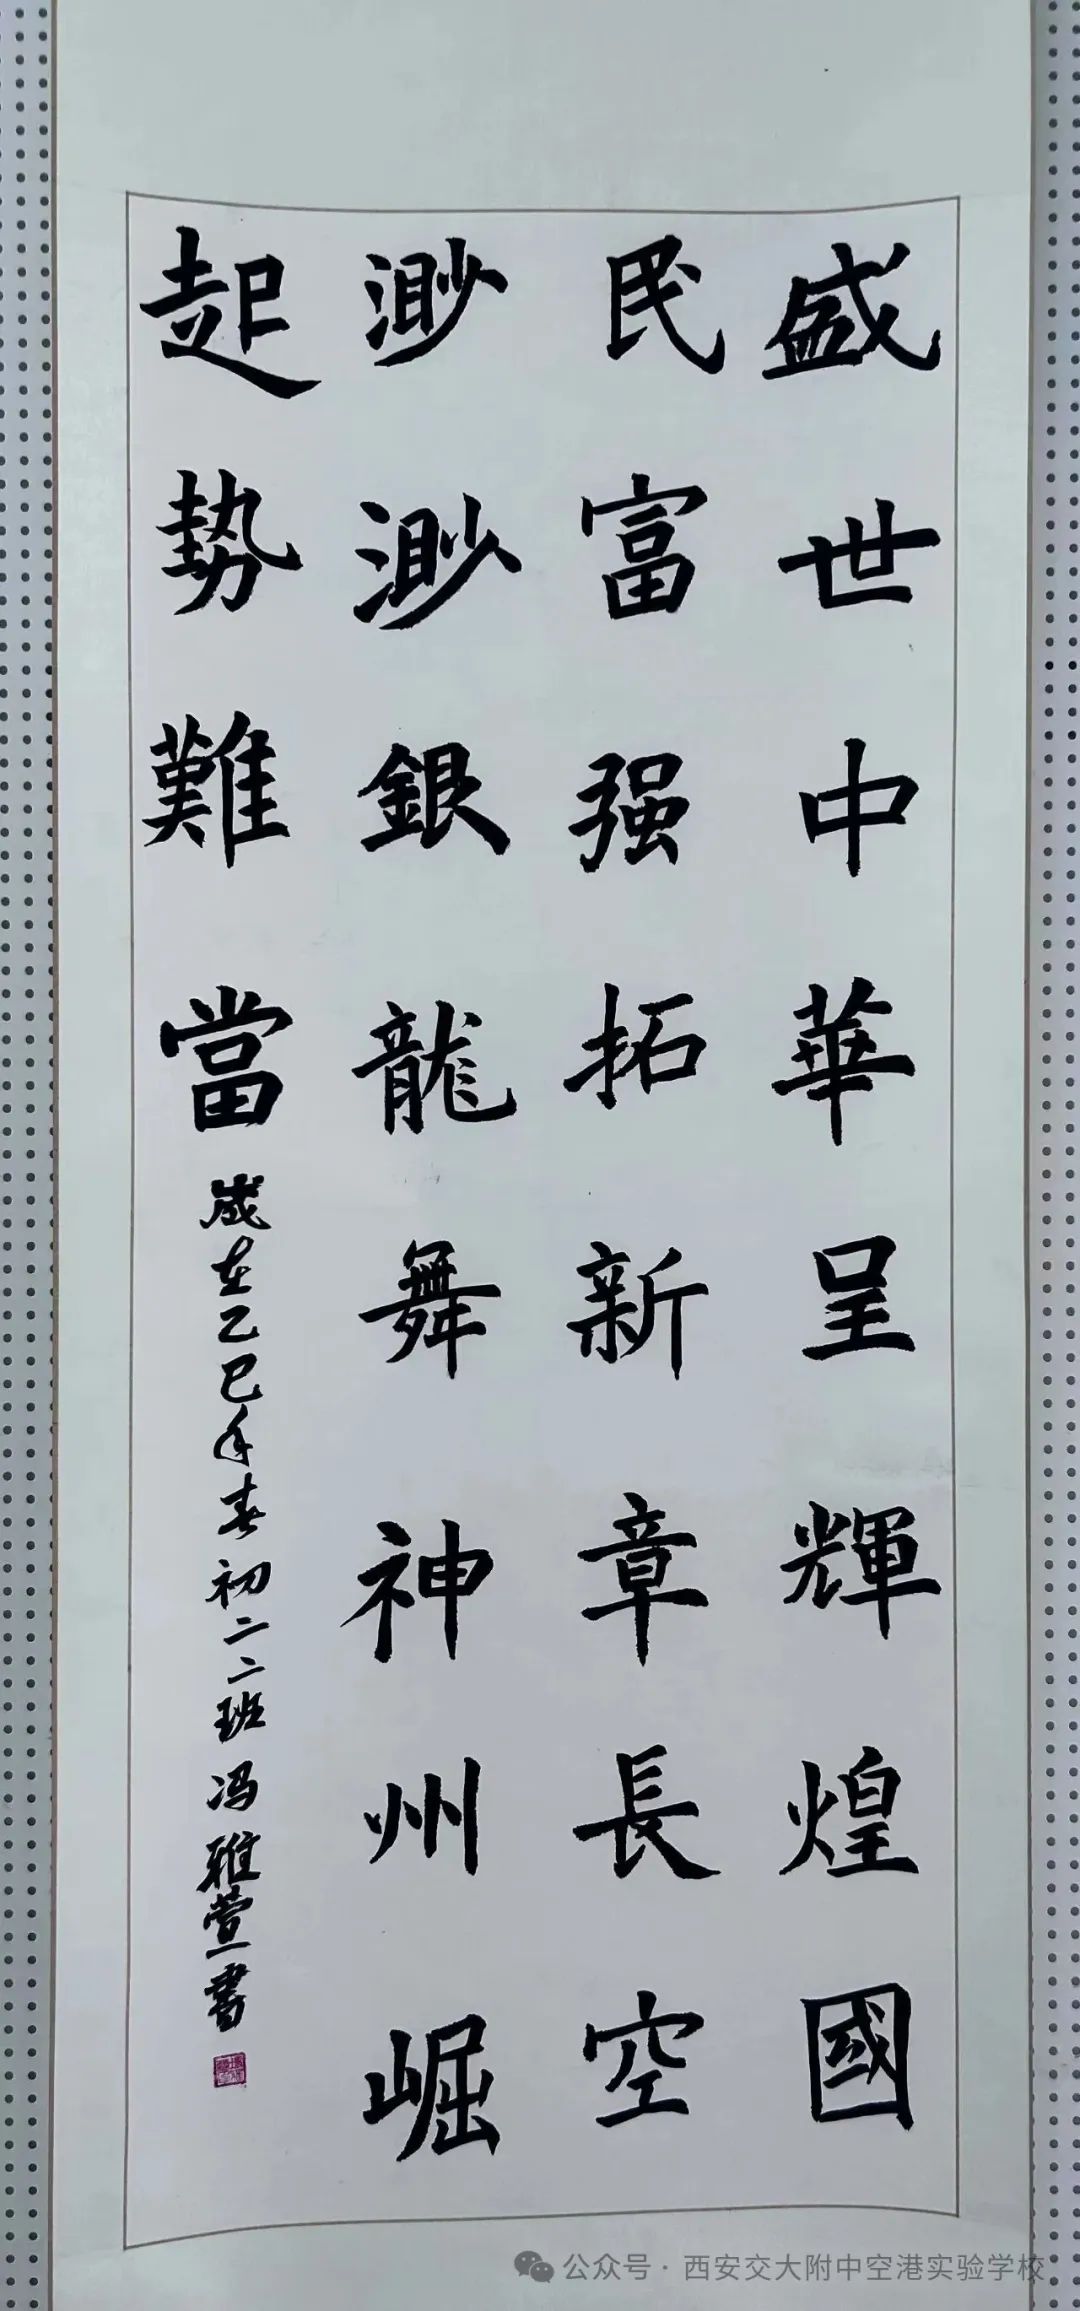 盛世中華呈輝煌國
民富强拓新章長空
渺渺銀龍舞神州崛
起勢難當
歲在乙巳年春初二二班冯雅萱書
公众号·西安交大附中空港实验学校